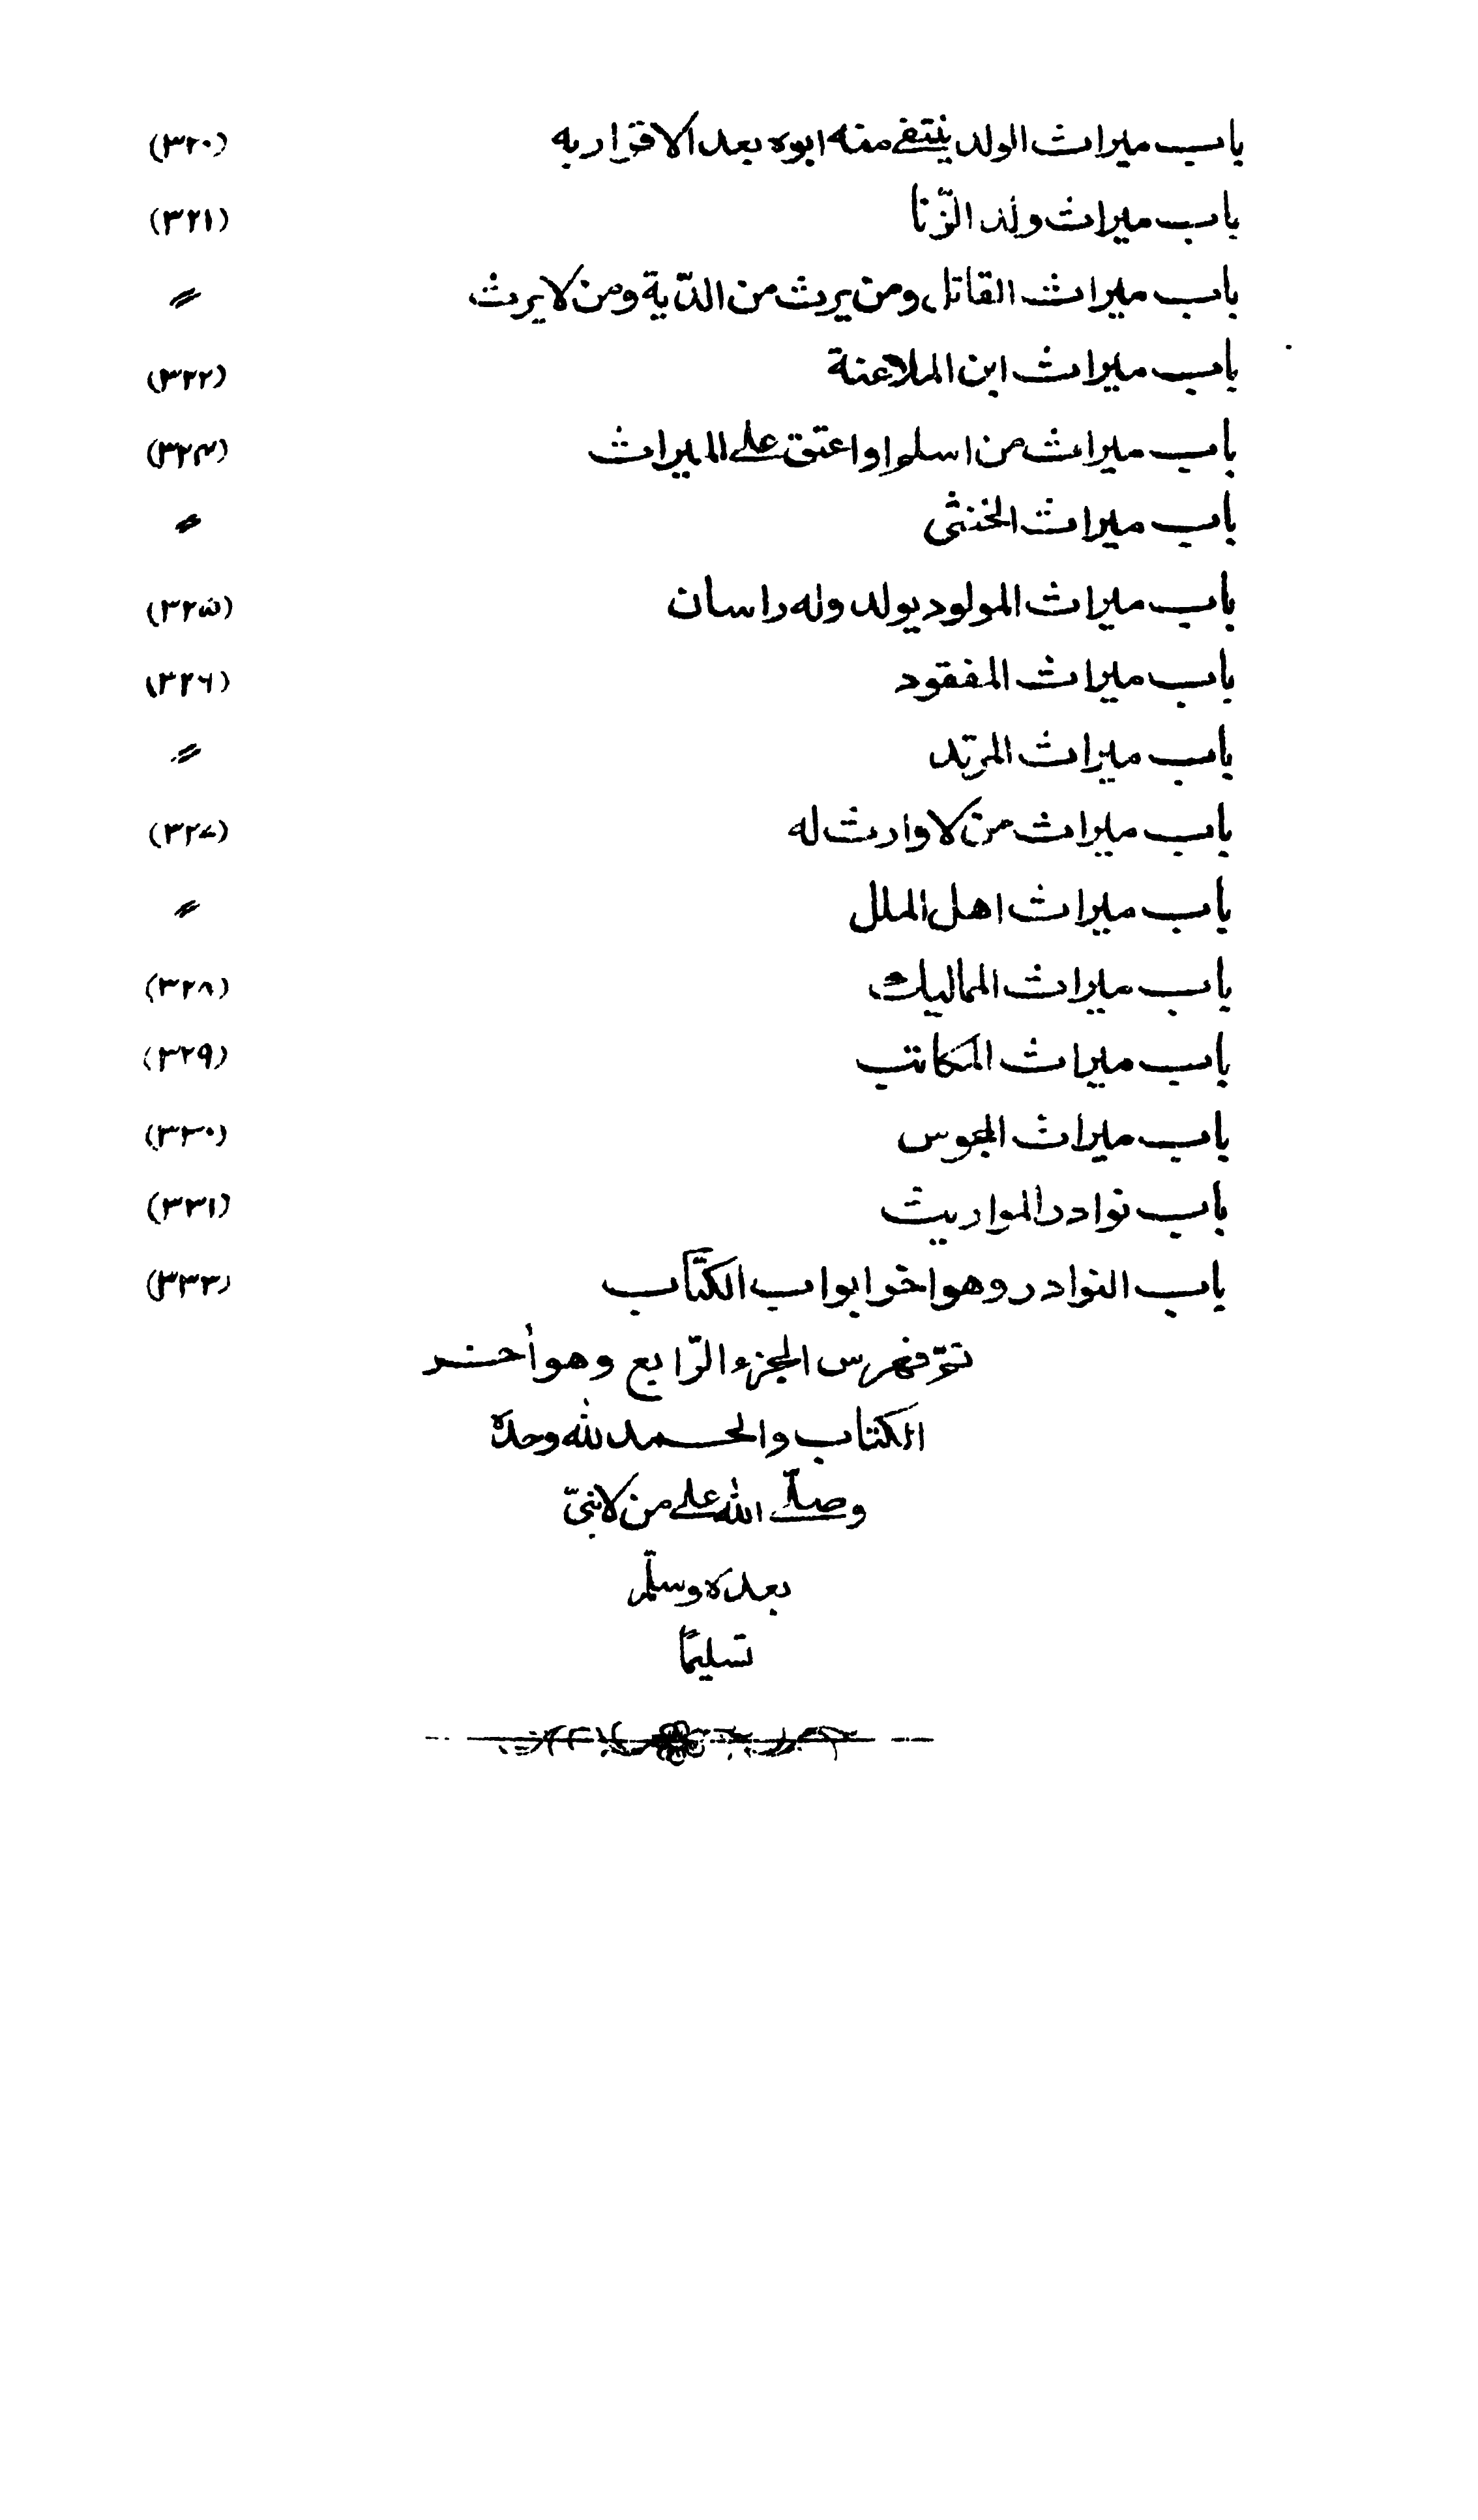 باب ميراث الولد ينتفى منه ابوه بعد الاقرار به (٣٢٠)
باب ميراث ولد الزّنا (٣٢١)
باب ميراث القاتل ومن يرث من الدّية ومن لا يرث 〃
باب ميراث ابن الملاعنة (٣٢٢)
باب ميراث من اسلم او اعتق على الميراث (٣٢٣)
باب ميراث الخنثى 〃
باب ميراث المولود يولد وله راسان (٣٢٥)
باب ميراث المفقود (٣٢٦)
باب ميراث المرتد 〃
باب ميراث من لا وارث له (٣٢٧)
باب ميراث اهل الملل 〃
باب ميراث المماليك (٣٢٨)
باب ميراث المكاتب (٣٢٩)
باب ميراث المجوس (٣٣٠)
باب نوادر المواريث (٣٣١)
باب النوادر وهو اخر ابواب الكتاب (٣٣٣)
تمّ فهرس الجزء الرّابع وهو أخر
الكتاب والحمد لله وحده
وصلّى الله على من لا نبىّ
بعده وسلّم
تسليمًا